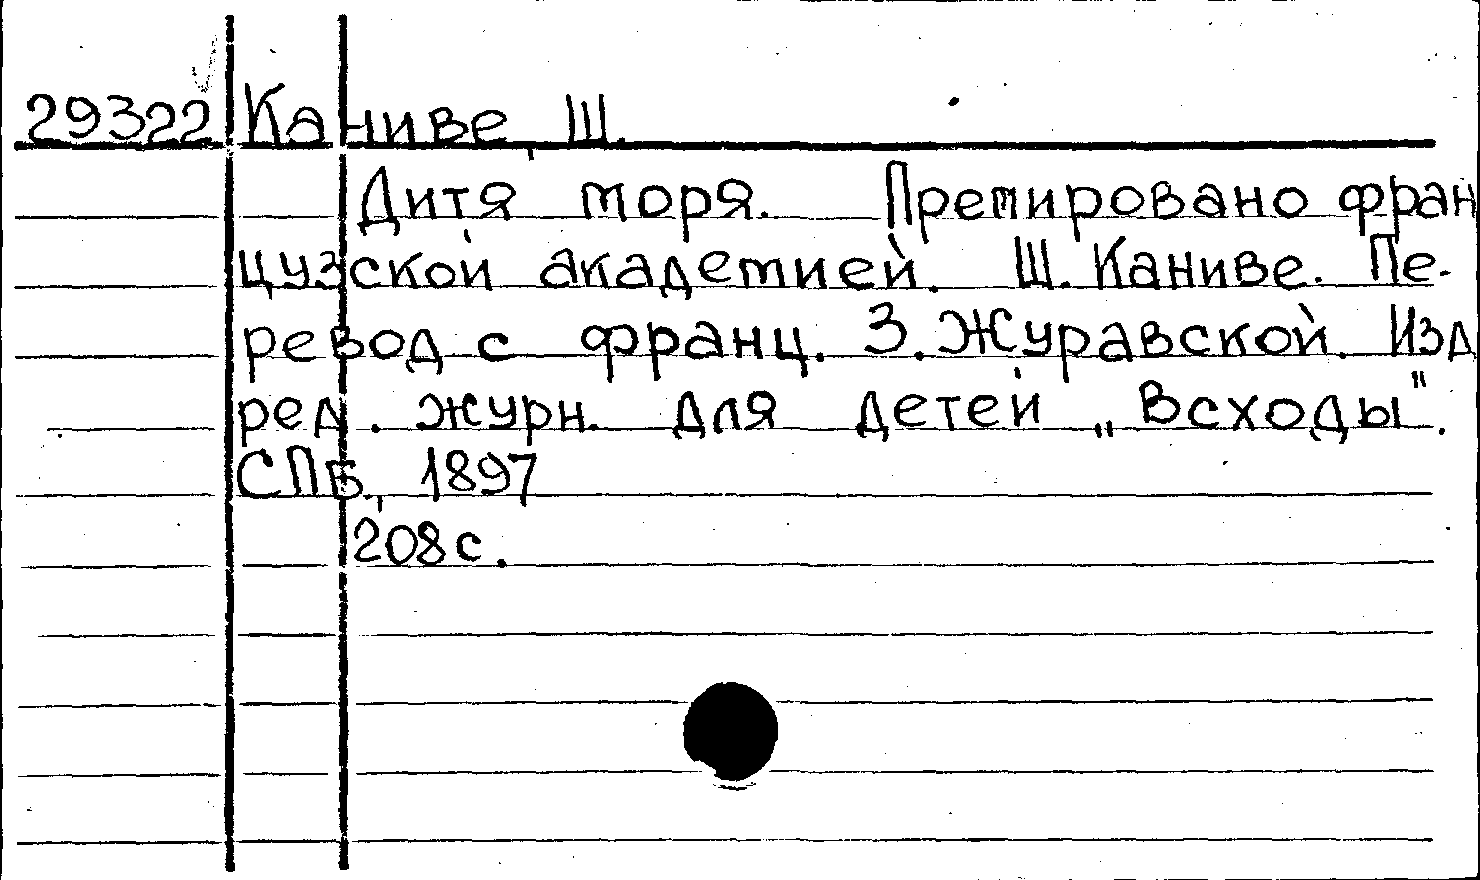 29322 Каниве, Ш.
Дитя моря. Премировано фран
цузской академией. Ш. Каниве. Пе-
ревод с франц. З. Журавской. Изд
ред. журн. для детей „Всходы".
СПБ., 1897
208 с.